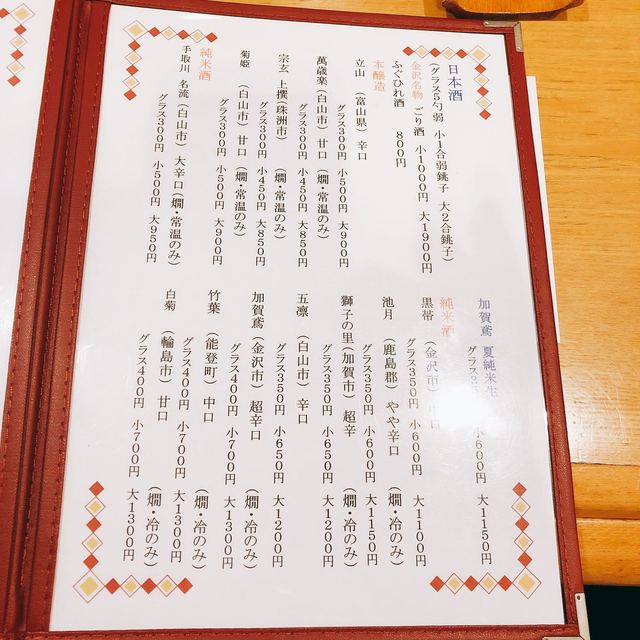 日本酒
(グラス5勺弱 小1合弱銚子 大2合銚子)
金沢名物 ごり酒 小1000円 大1900円
ふぐひれ酒 800円
本醸造
立山 (富山県) 辛口
グラス300円 小500円 大900円
萬歳楽 (白山市) 甘口 (燗・常温のみ)
グラス300円 小450円 大850円
宗玄 上撰 (珠洲市) (燗・常温のみ)
グラス300円 小450円 大850円
菊姫 (白山市) 甘口 (燗・常温のみ)
グラス300円 小500円 大900円
純米酒
手取川 名流 (白山市) 大辛口 (燗・常温のみ)
グラス300円 小500円 大950円
加賀鳶 夏純米生
グラス35 小600円 大1150円
純米酒
黒帯 (金沢市) 口
グラス350円 小600円 大1100円
池月 (鹿島郡) やや辛口 (燗・冷のみ)
グラス350円 小600円 大1150円
獅子の里 (加賀市) 超辛 (燗・冷のみ)
グラス350円 小650円 大1200円
五凛 (白山市) 辛口
グラス350円 小650円 大1200円
加賀鳶 (金沢市) 超辛口 (燗・冷のみ)
グラス400円 小700円 大1300円
竹葉 (能登町) 中口 (燗・冷のみ)
グラス400円 小700円 大1300円
白菊 (輪島市) 甘口 (燗・冷のみ)
グラス400円 小700円 大1300円